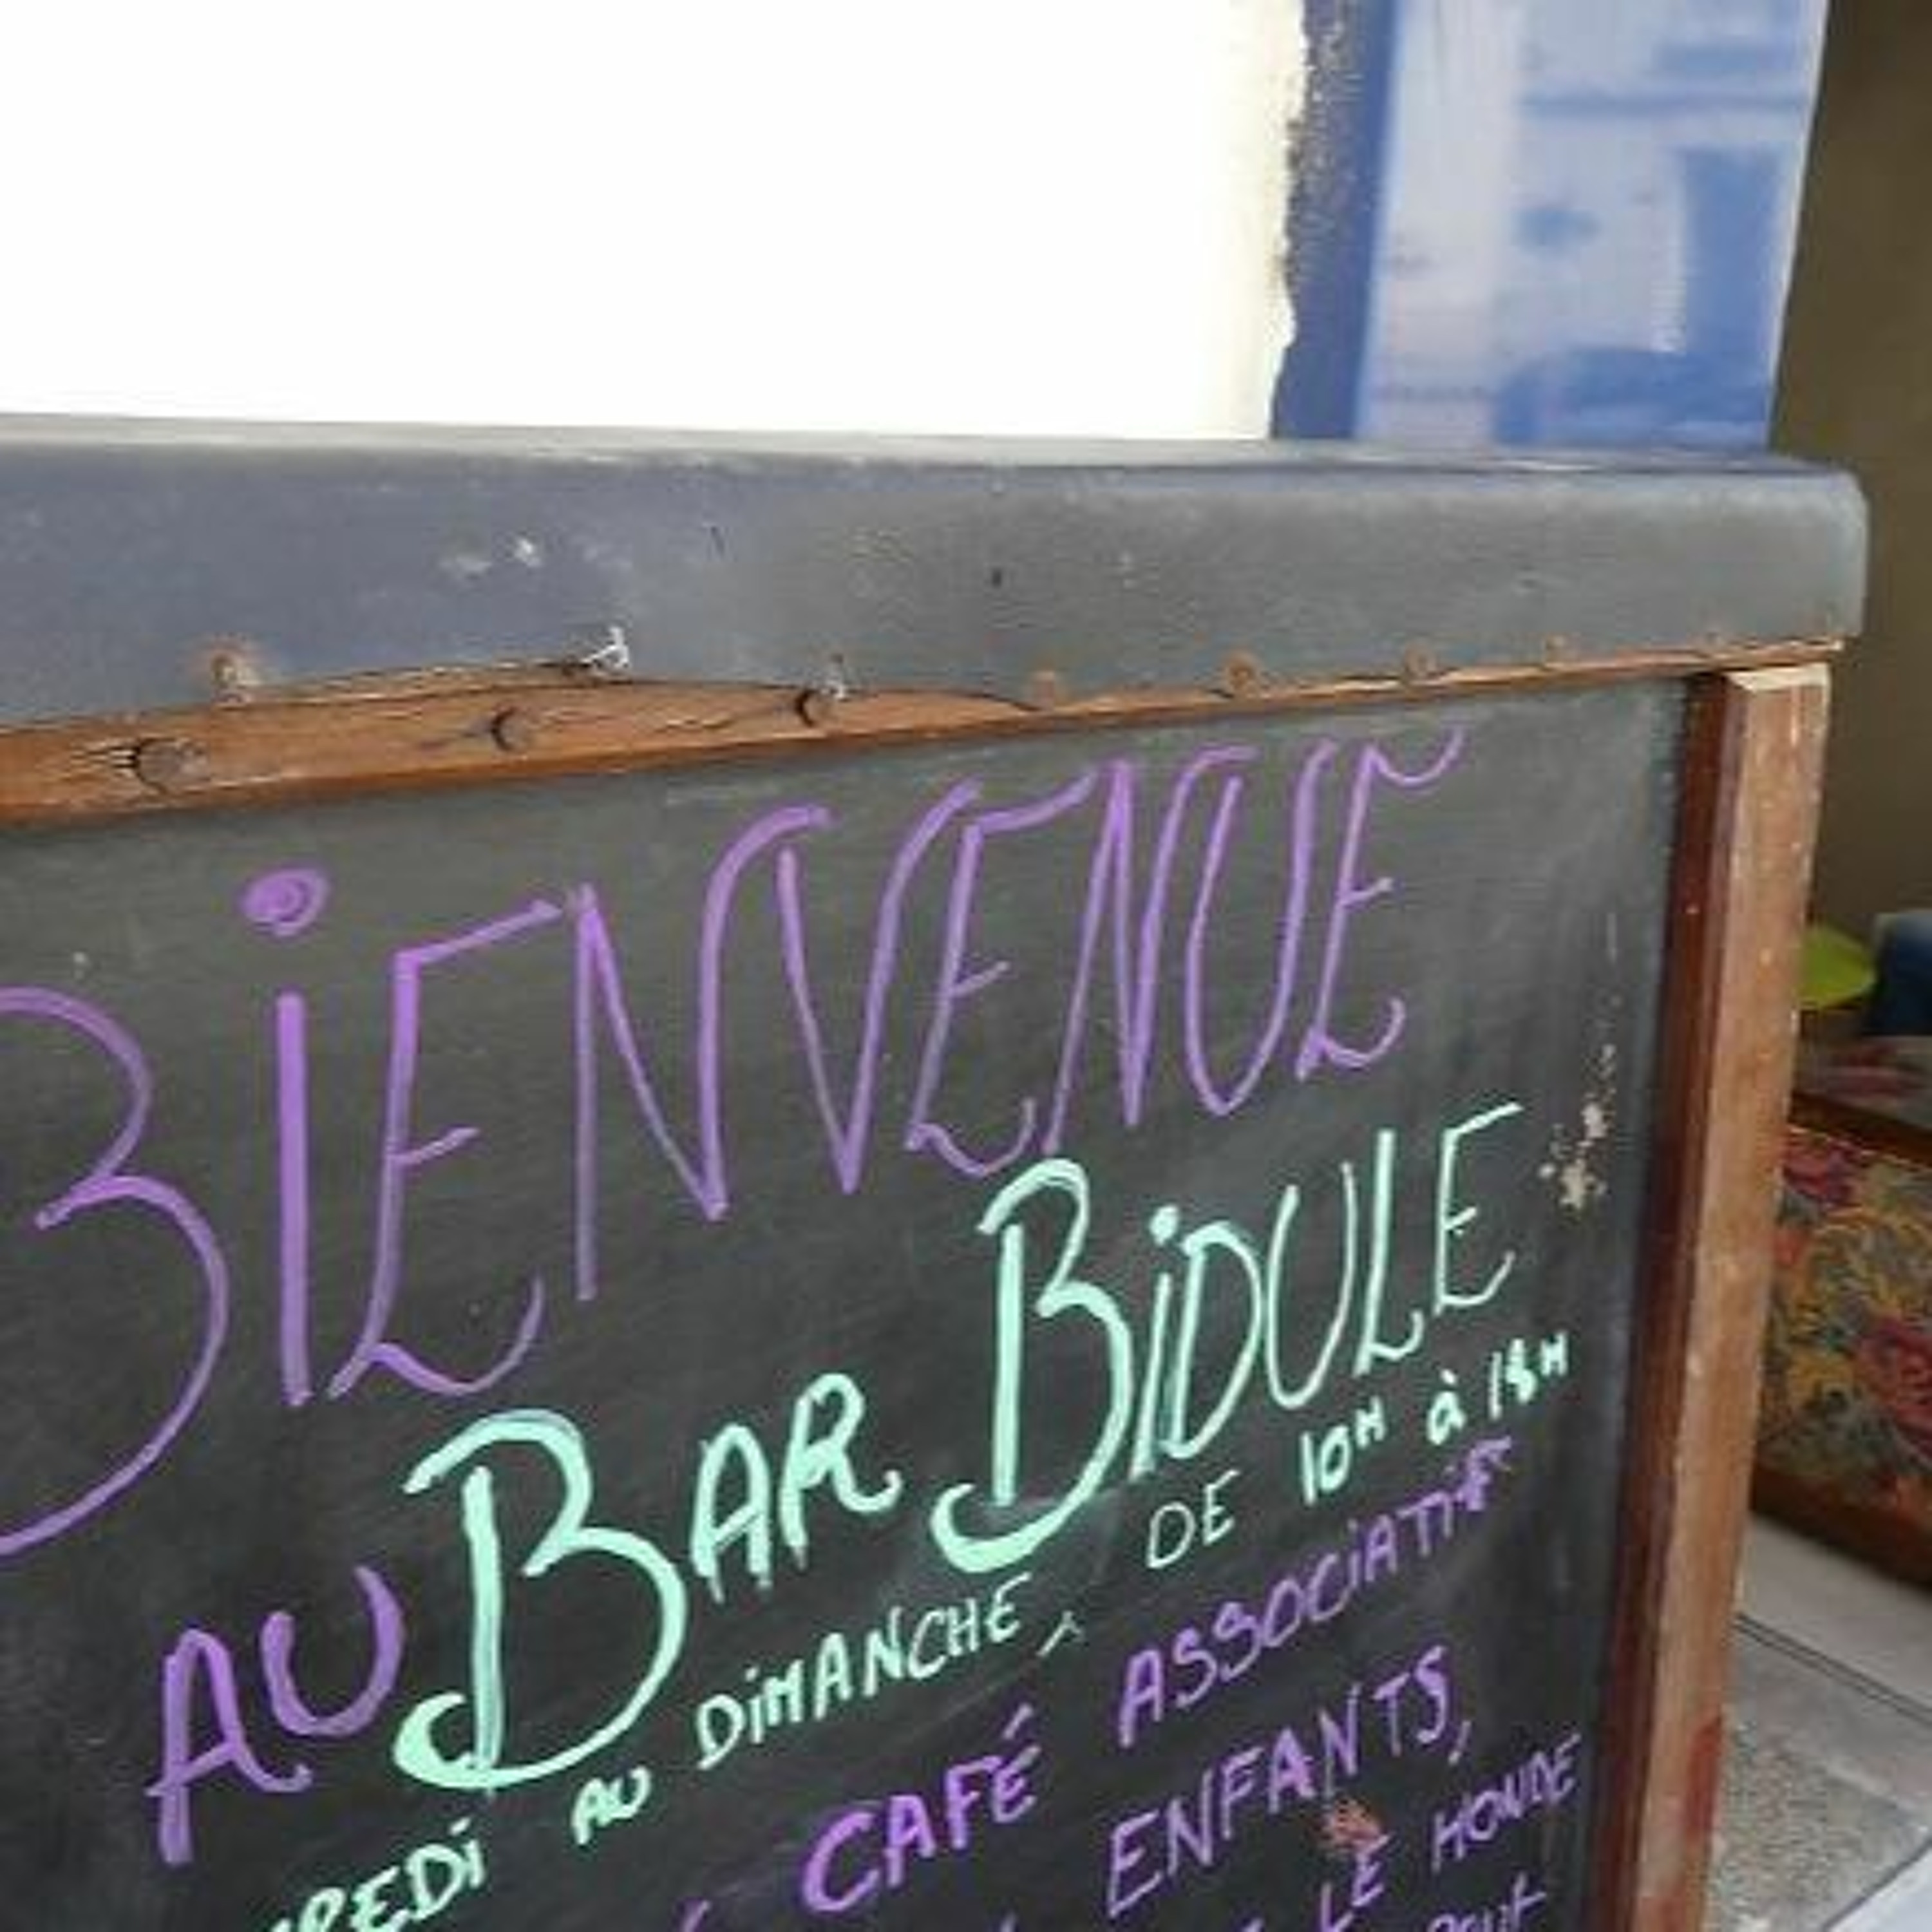 BiENVENUE
AU BAR BiDULE
AU DiMANCHE, DE 10H à 18H
CAFÉ ASSOCIATIF
ENFANTS,
LE MONDE